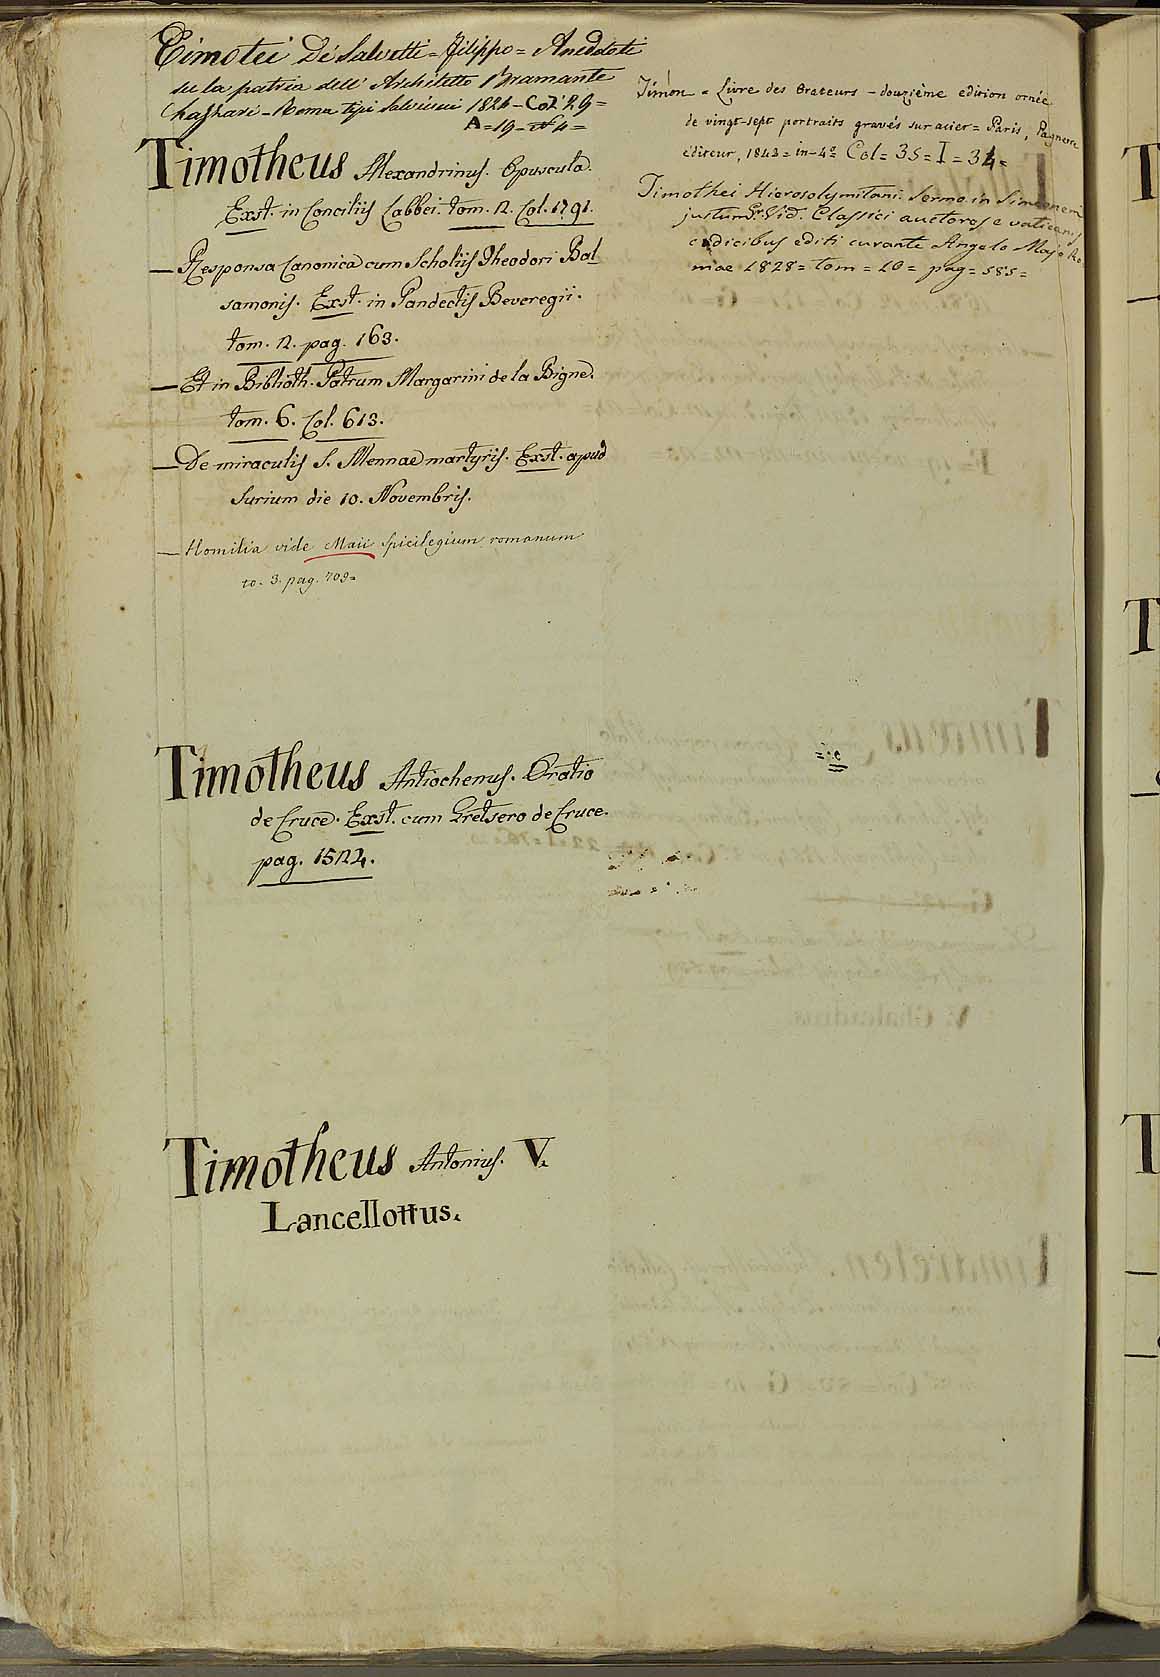 Timotei De Salvetti = Filippo = Aneddoti
su la patria dell' Architetto Bramante
Roma tipi Salviucci 1824 - Col 29 =
A = 19 - 4 =
Timotheus Alexandrinus. Opuscula.
Exst. in Conciliis Labbei. tom. 2. Col. 1791.
— Responsa Canonica cum Scholiis Theodori Bal
samonis. Exst. in Pandectis Beveregii.
tom. 2. pag. 163.
— Et in Biblioth. Patrum Margarini de la Bigne.
tom. 6. Col. 613.
— De miraculis S. Mennae martyris. Exst. apud
Surium die 10. Novembris.
— Homilia vide Maii Spicilegium romanum
to. 3. pag. 709 =
Timotheus Antiochenus. Oratio
de Cruce. Exst. cum Gretsero de Cruce.
pag. 1524.
Timotheus Antonius. V.
Lancellottus.
Timon = Livre des Orateurs - douzième edition ornée
de vingt-sept portraits gravés sur acier = Paris, Pagnerre
editeur, 1843 = in-4º Col = 35 = I = 34 =
Timothei Hierosolymitani. Sermo in Simeonem
justum. Vid. Classici auctores e vaticanis
codicibus editi curante Angelo Majo Ro
mae 1828 = tom = 10 = pag = 585 =